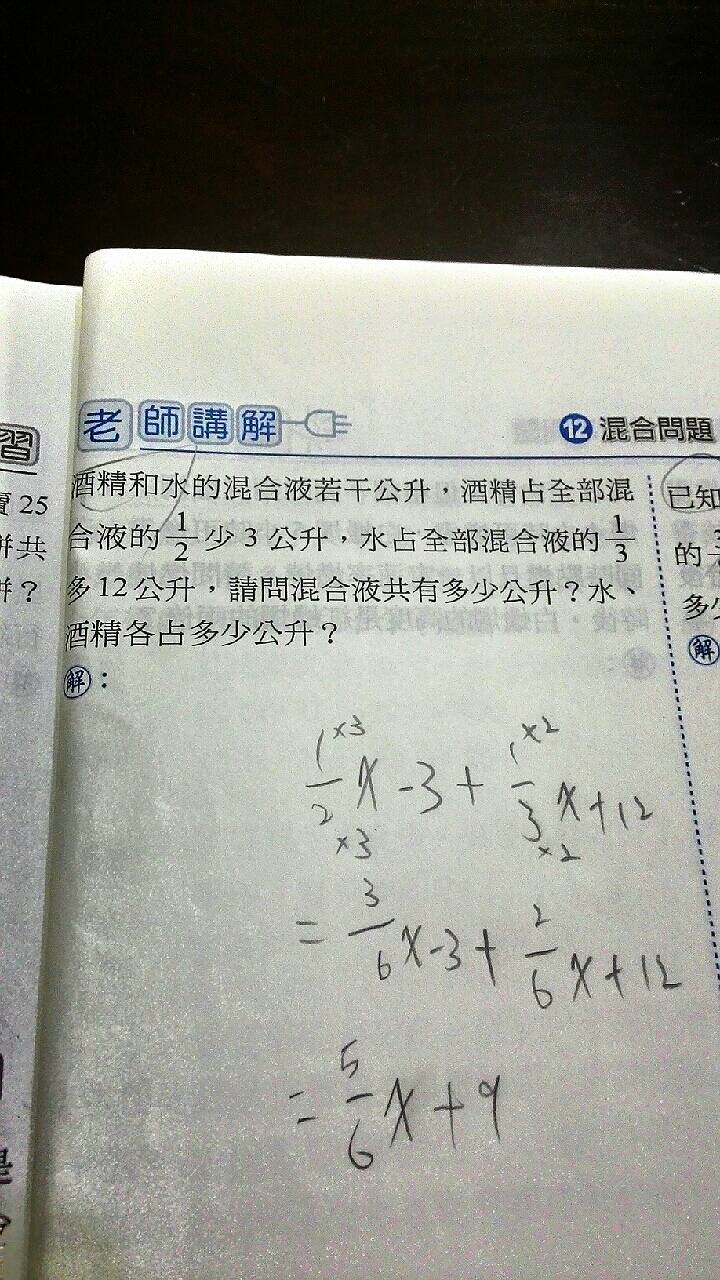 老師講解
12 混合問題
酒精和水的混合液若干公升，酒精占全部混
合液的1/2少3公升，水占全部混合液的1/3
多12公升，請問混合液共有多少公升？水、
酒精各占多少公升？
解：
1/2x-3+1/3x+12
×3 ×2
×3 ×2
=3/6x-3+2/6x+12
=5/6x+9
習
25
共
？
已知
的
多少
解